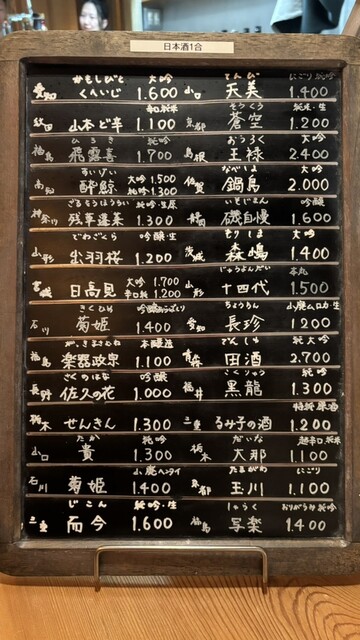 日本酒1合
かもしびと 大吟
愛知 くへいじ 1.600
辛口純米
秋田 山本ど辛 1.100
ひろき 純吟
福島 飛露喜 1.700
すいげい
高知 酔鯨 大吟 1,500
純吟 1,300
ざるそうほうらい 純吟・生原
神奈川 残草蓬莱 1.300
でわざくら 吟醸・生
山形 出羽桜 1.200
宮城 日高見 大吟 1.700
辛口純 1.200
きくひめ
石川 菊姫 1.400
がっきまさむね 本醸造
福島 楽器政宗 1.100
さくのはな 吟醸
長野 佐久の花 1.000
栃木 せんきん 1.300
たか 純吟
山口 貴 1.300
石川 菊姫 1.400
じこん 純吟・生
三重 而今 1.600
てんび にごり純吟
山口 天美 1.400
そうくう 純米・生
京都 蒼空 1.200
おうろく 大吟
島根 王祿 2.400
なべしま 大吟
佐賀 鍋島 2.000
いそじまん 吟醸
静岡 磯自慢 1.600
もりしま 大吟
茨城 森嶋 1.400
じゅうよんだい 本丸
山形 十四代 1.500
ちょうちん 山廃ムロカ生
愛知 長珍 1200
でんしゅ 純大吟
青森 田酒 2.700
こくりゅう 純吟
福井 黒龍 1.300
特純原酒
三重 るみ子の酒 1.200
だいな 超辛口純吟
栃木 大那 1.100
たまがわ にごり
京都 玉川 1.100
しゃらく おりがらみ純吟
福島 写楽 1.400